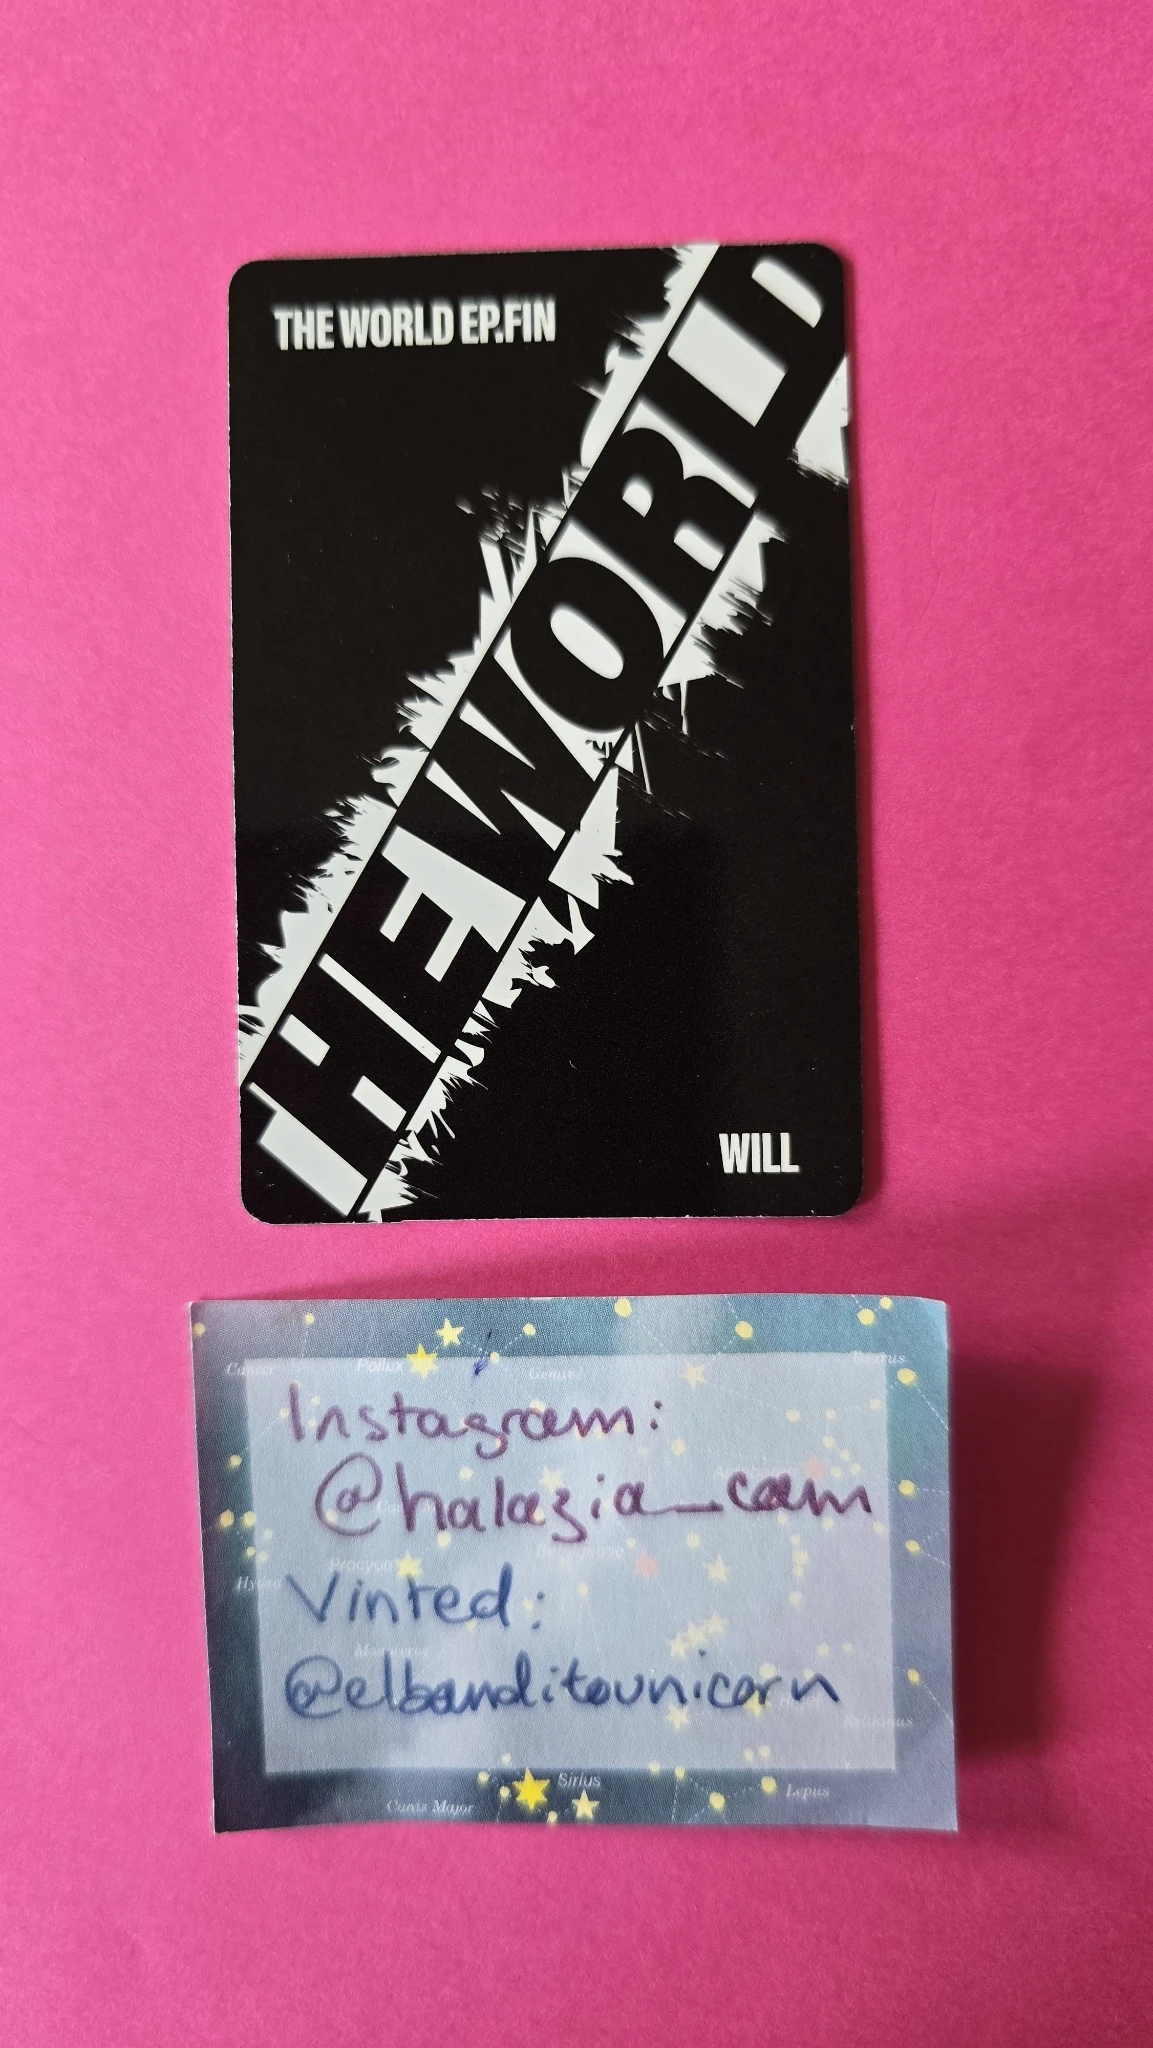 THE WORLD EP.FIN
THE WORLD
WILL
Cancer
Pollux
Gemini
Taurus
Instagram:
@halazia_cam
Procyon
Betelgeuse
Hydra
Vinted:
Monoceros
@elbanditounicorn
Eridanus
Sirius
Canis Major
Lepus